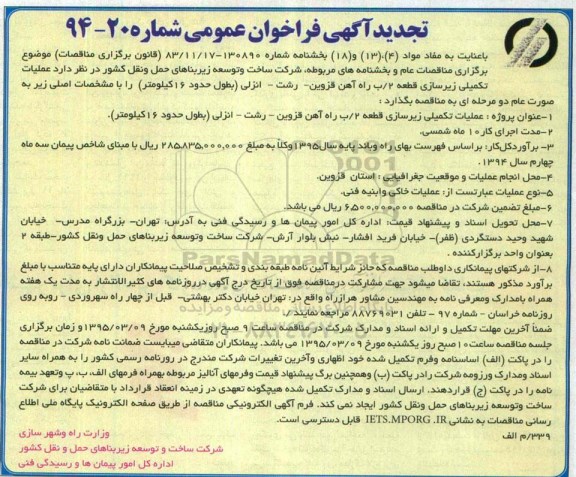 تجدید آگهی فراخوان عمومی شماره ۲۰-۹۴
باعنایت به مفاد مواد (۴)،(۱۳) و(۱۸) بخشنامه شماره ۱۳۰۸۹۰-۸۳/۱۱/۱۷ (قانون برگزاری مناقصات) موضوع
برگزاری مناقصات عام و بخشنامه های مربوطه، شرکت ساخت وتوسعه زیربناهای حمل ونقل کشور در نظر دارد عملیات
تکمیلی زیرسازی قطعه ۲/ب راه آهن قزوین- رشت - انزلی (بطول حدود ۱۶کیلومتر) را با مشخصات اصلی زیر به
صورت عام دو مرحله ای به مناقصه بگذارد :
۱-عنوان پروژه : عملیات تکمیلی زیرسازی قطعه ۲/ب راه آهن قزوین - رشت - انزلی (بطول حدود ۱۶کیلومتر).
۲-مدت اجرای کار۱۰ ماه شمسی.
۳- برآوردکل‌کار: براساس فهرست بهای راه وباند پایه سال۱۳۹۵وکلاً به مبلغ ۲۸۵،۸۳۵،۰۰۰،۰۰۰ ریال با مبنای شاخص پیمان سه ماه
چهارم سال ۱۳۹۴.
۴-محل انجام عملیات و موقعیت جغرافیایی : استان قزوین.
۵-نوع عملیات عبارتست از: عملیات خاکی وابنیه فنی.
۶-مبلغ تضمین شرکت در مناقصه ۶،۵۰۰،۰۰۰،۰۰۰ ریال می باشد.
۷-محل تحویل اسناد و پیشنهاد قیمت: اداره کل امور پیمان ها و رسیدگی فنی به آدرس: تهران- بزرگراه مدرس- خیابان
شهید وحید دستگردی (ظفر)- خیابان فرید افشار- نبش بلوار آرش- شرکت ساخت وتوسعه زیربناهای حمل ونقل کشور-طبقه ۲
بعنوان واحد برگزارکننده .
۸-از شرکتهای پیمانکاری داوطلب مناقصه که حائز شرایط آئین نامه طبقه بندی و تشخیص صلاحیت پیمانکاران دارای پایه متناسب با مبلغ
برآورد مذکور هستند، تقاضا میشود جهت مشارکت درمناقصه فوق از تاریخ درج آگهی درروزنامه های کثیرالانتشار به مدت یک هفته
همراه بامدارک ومعرفی نامه به مهندسین مشاور هرازراه واقع در: تهران خیابان دکتر بهشتی- قبل از چهار راه سهروردی - روبه روی
روزنامه خراسان - شماره ۹۷ - تلفن ۸۸۷۶۹۰۳۱ مراجعه نمایند .
ضمناً آخرین مهلت تکمیل و ارائه اسناد و مدارک شرکت در مناقصه ساعت ۹ صبح روزیکشنبه مورخ ۱۳۹۵/۰۳/۰۹و زمان برگزاری
جلسه مناقصه ساعت۱۰صبح روز یکشنبه مورخ ۱۳۹۵/۰۳/۰۹ می باشد. پیمانکاران متقاضی میبایست ضمانت نامه شرکت در مناقصه
را در پاکت (الف) اساسنامه وفرم تکمیل شده خود اظهاری وآخرین تغییرات شرکت مندرج در روزنامه رسمی کشور را به همراه سایر
اسناد ومدارک ورزومه شرکت رادر پاکت (ب) وهمچنین برگ پیشنهاد قیمت وفرمهای آنالیز مربوطه بهمراه فرمهای الف، ب، پ وتعهد بیمه
نامه را در پاکت (ج) قراردهند. ارسال اسناد و مدارک تکمیل شده هیچگونه تعهدی در زمینه انعقاد قرارداد با متقاضیان برای شرکت
ساخت وتوسعه زیربناهای حمل ونقل کشور ایجاد نمی کند. فرم آگهی الکترونیکی مناقصه از طریق صفحه الکترونیک پایگاه ملی اطلاع
رسانی مناقصات به نشانی IETS.MPORG .IR قابل دسترسی است.
۳۳۹/م الف
وزارت راه وشهر سازی
شرکت ساخت و توسعه زیربناهای حمل و نقل کشور
اداره کل امور پیمان ها و رسیدگی فنی
ParsNamadData